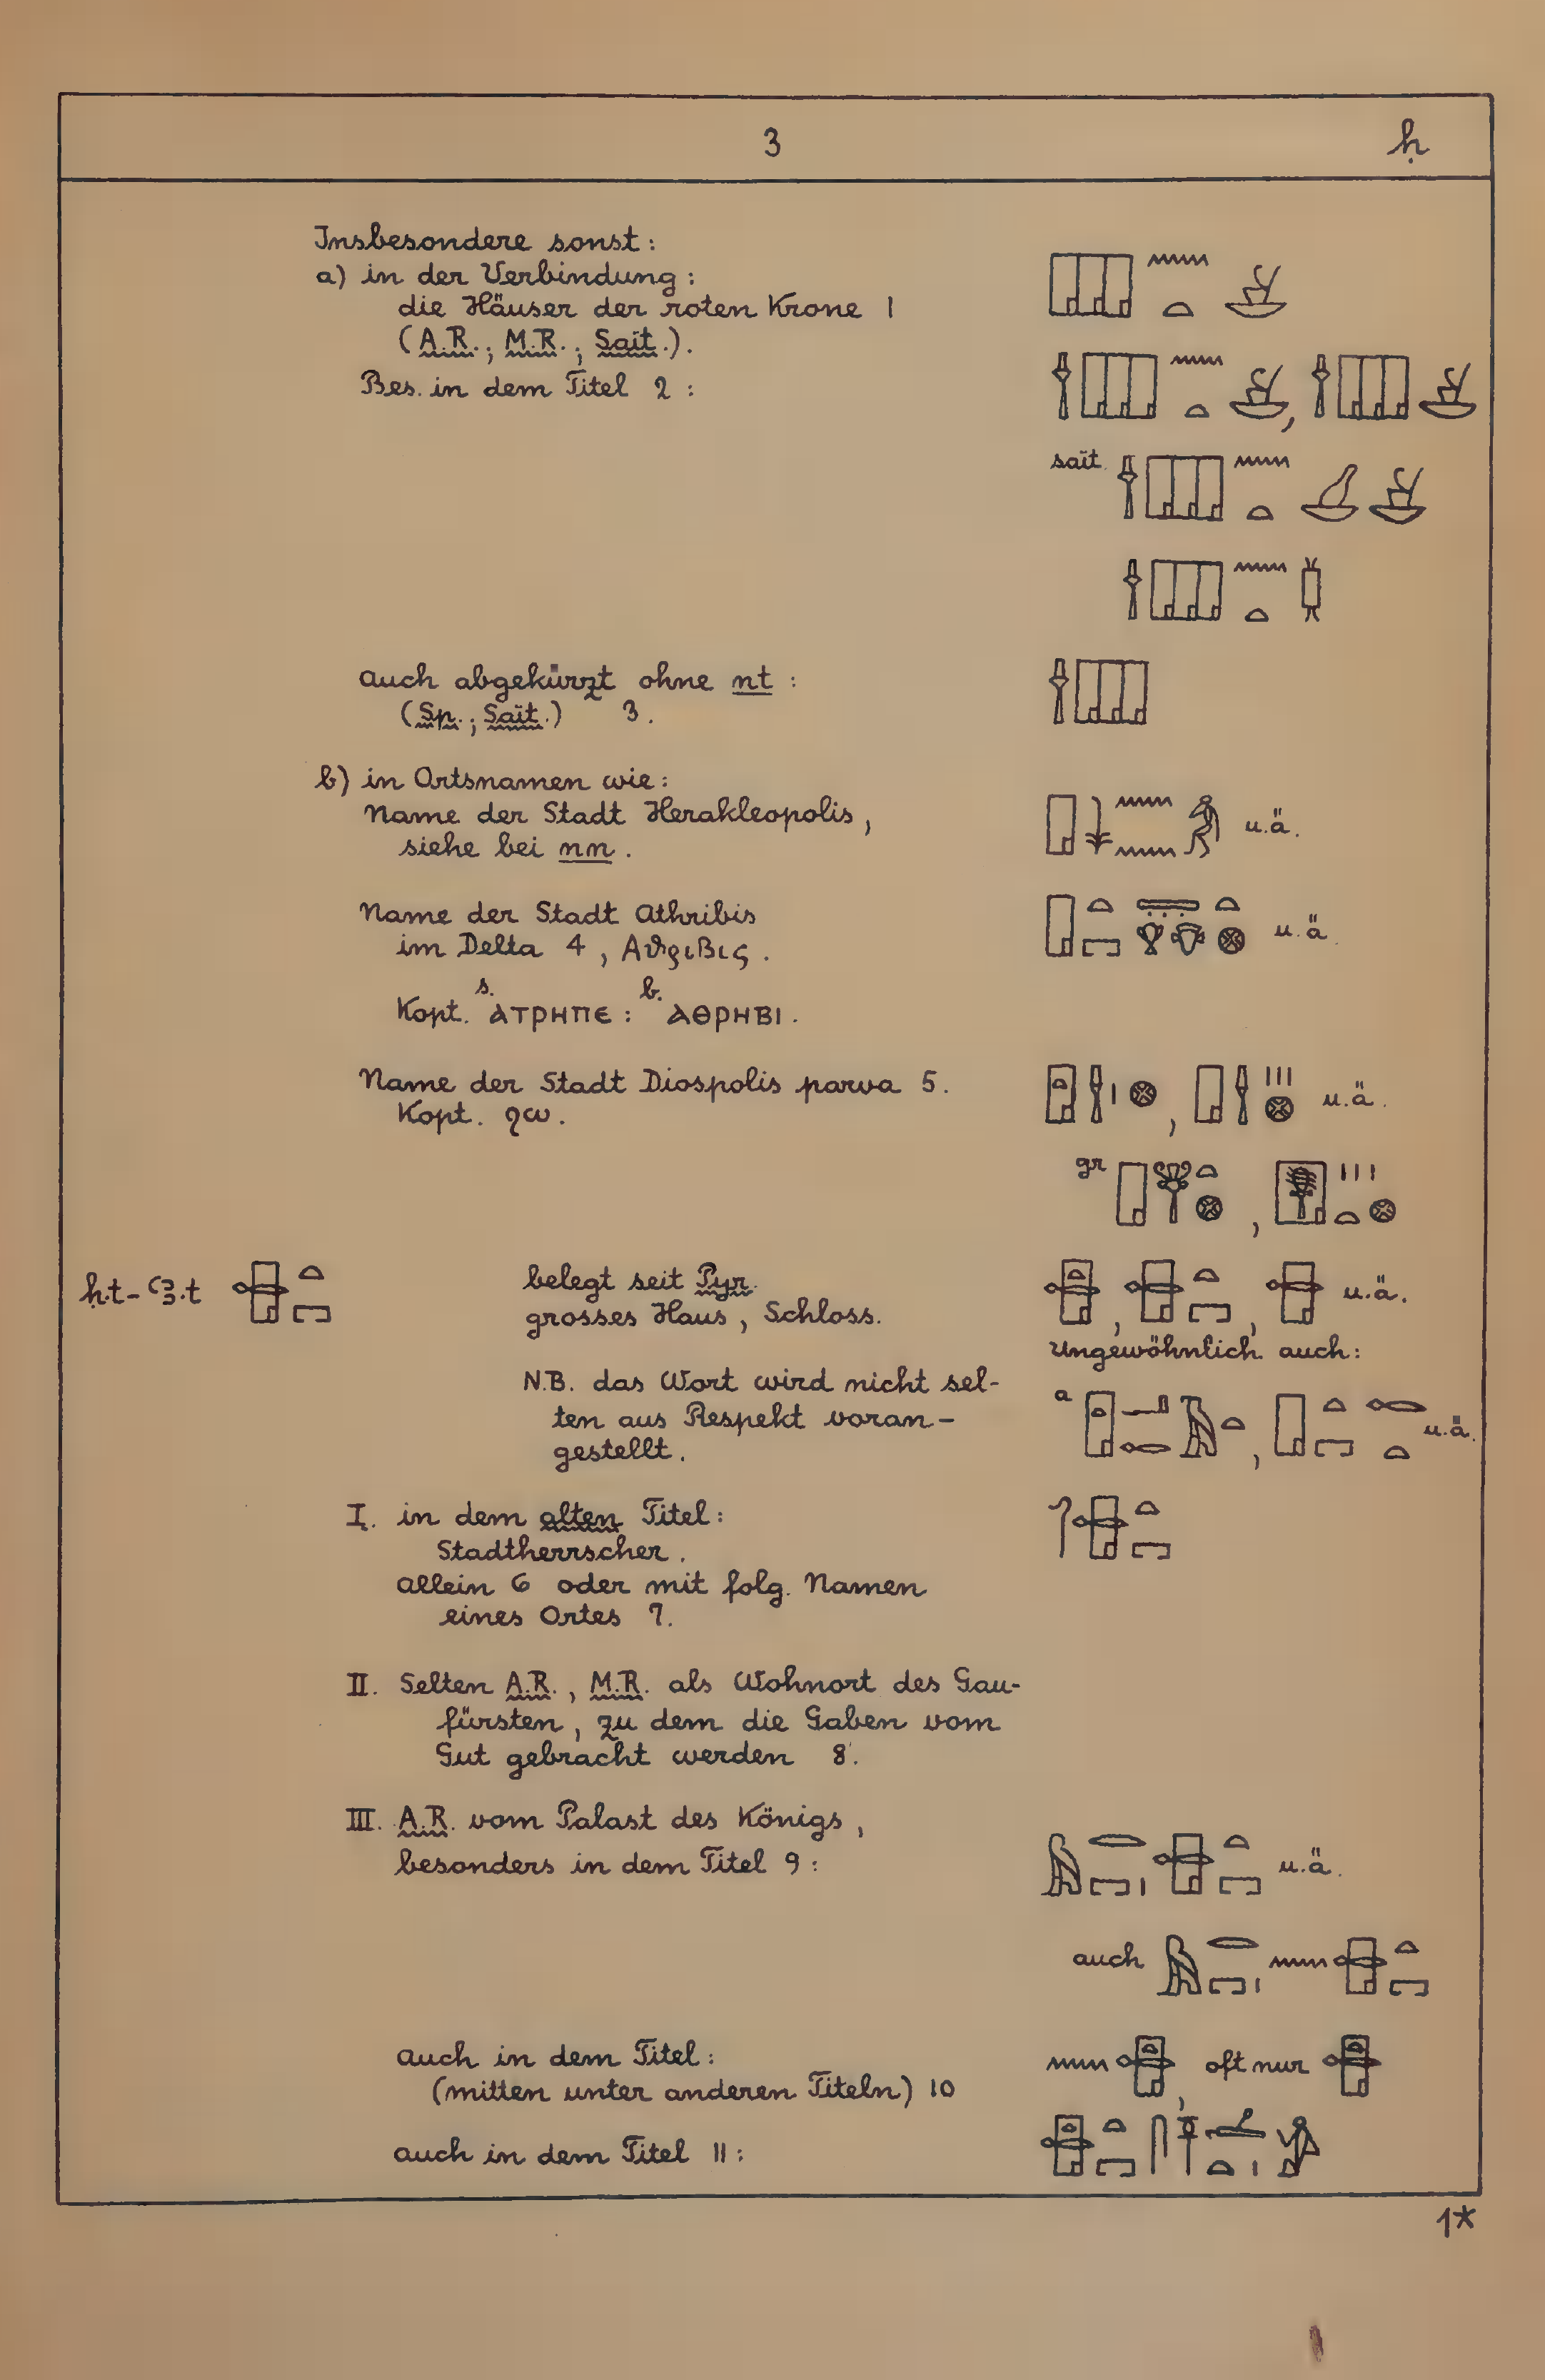 3 ḥ
Insbesondere sonst:
a) in der Verbindung:
die Häuser der roten Krone 1
(A.R.; M.R.; Saït.).
Bes. in dem Titel 2:
saït.
auch abgekürzt ohne nt:
(Sp.; Saït.) 3.
b) in Ortsnamen wie:
Name der Stadt Herakleopolis,
siehe bei nn. u.ä.
Name der Stadt Athribis
im Delta 4, Αϑριβις. u.ä.
Kopt. s. ⲁⲧⲣⲏⲡⲉ: b. ⲁⲑⲣⲏⲃⲓ.
Name der Stadt Diospolis parva 5.
Kopt. ϩⲱ. u.ä.
gr
ḥ.t-ꜥꜣ.t belegt seit Pyr.
grosses Haus, Schloss. u.ä.
Ungewöhnlich auch:
N.B. das Wort wird nicht sel-
ten aus Respekt voran-
gestellt. a u.ä.
I. in dem alten Titel:
Stadtherrscher.
allein 6 oder mit folg. Namen
eines Ortes 7.
II. Selten A.R., M.R. als Wohnort des Gau-
fürsten, zu dem die Gaben vom
Gut gebracht werden 8.
III. A.R. vom Palast des Königs,
besonders in dem Titel 9: u.ä.
auch
auch in dem Titel: oft nur
(mitten unter anderen Titeln) 10
auch in dem Titel 11:
1*